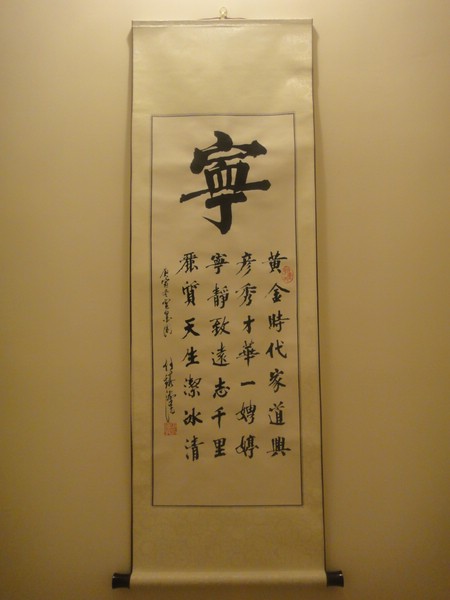 寧
黃金時代家道興
彥秀才華一娉婷
寧靜致遠志千里
麗質天生潔冰清